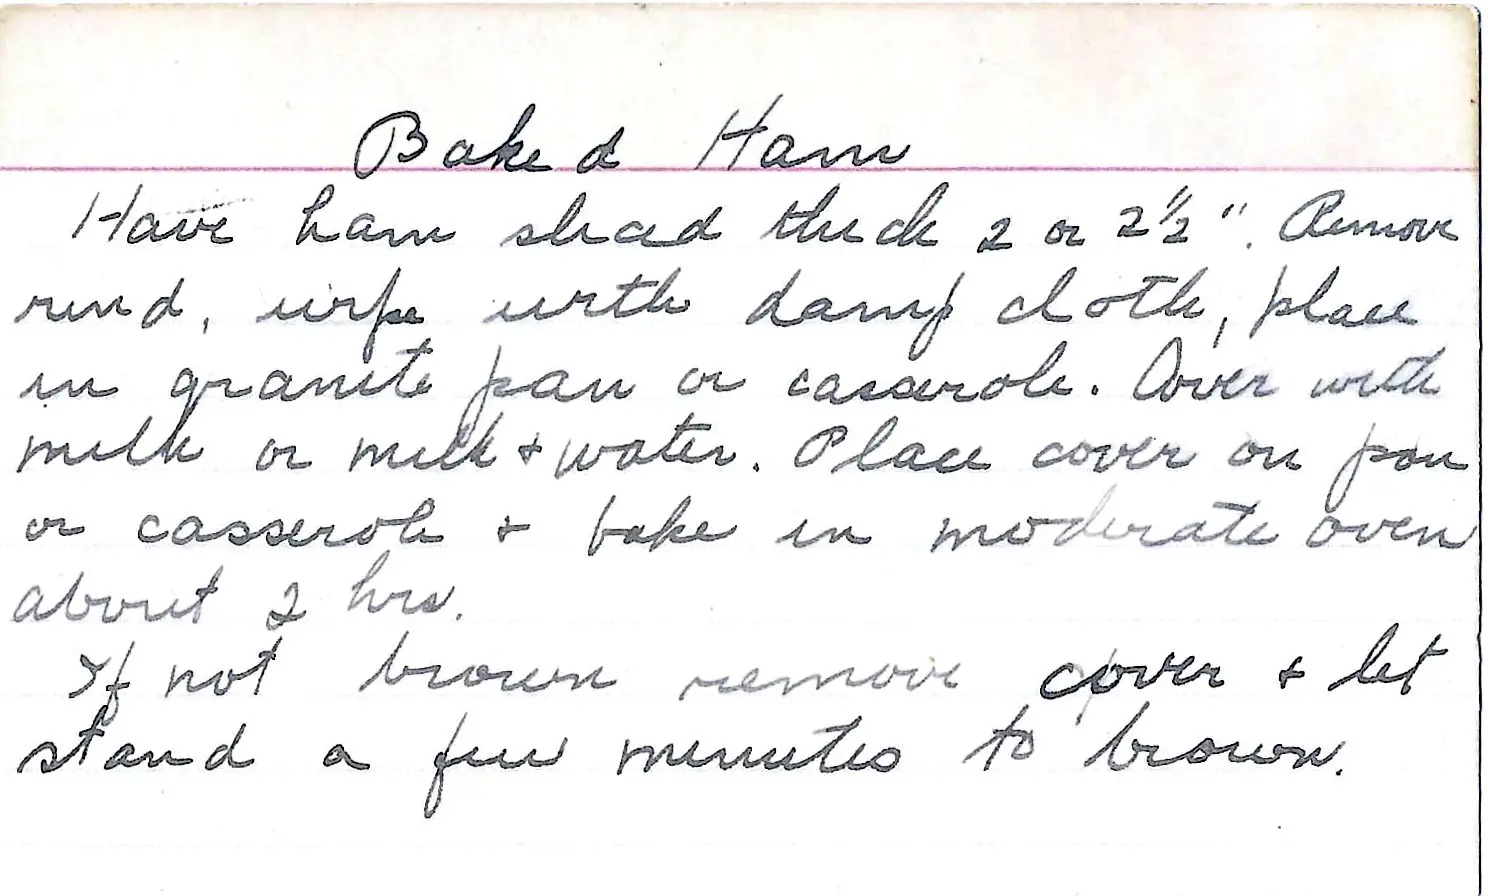 Baked Ham
Have ham sliced thick 2 or 2 1/2". Remove
rind, wipe with damp cloth, place
in granite pan or casserole. Cover with
milk or milk + water. Place cover on pan
or casserole + bake in moderate oven
about 2 hrs.
If not brown remove cover + let
stand a few minutes to brown.